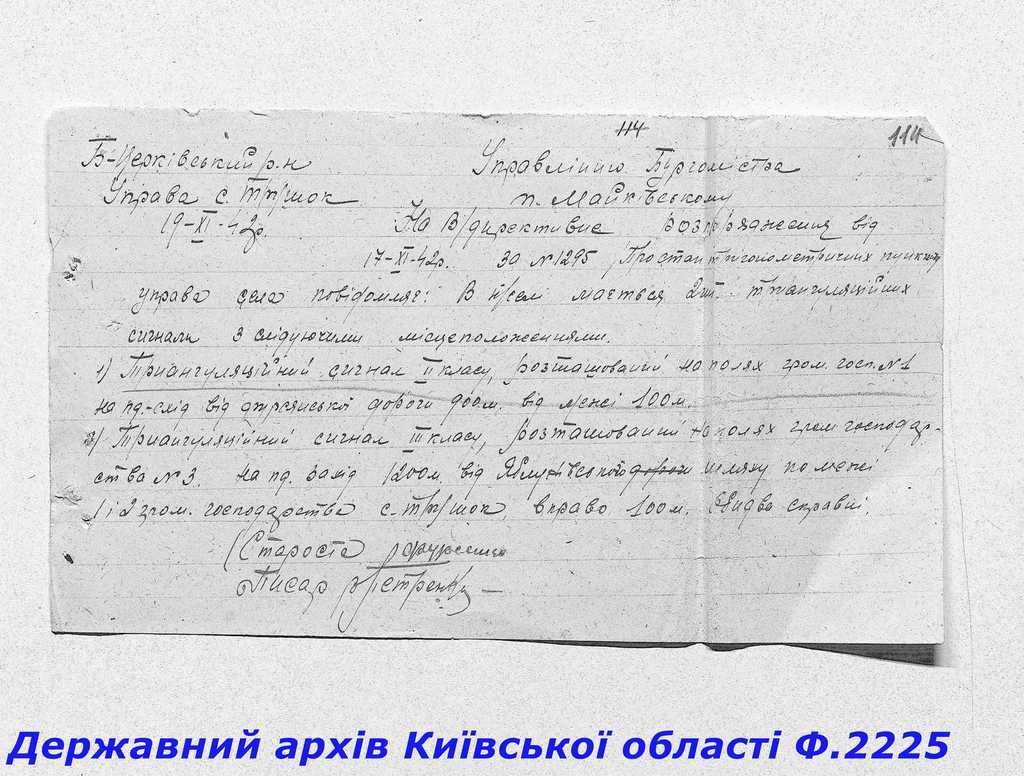 114
114
Б-Церківський р-н
Управлінню Бургомістра
Управа с. Трушок
п. Майківському
19-XI-42р.
На В/директивне розпорядження від
17-XI-42р. за №1295 /Про стан тригонометричних пунктів/
управа села повідомляє: В н/селі мається 2 шт. тріангуляційних
сигнали з слідуючими місцеположеннями.
1) Тріангуляційний сигнал II класу, розташований на полях гром. госп. №1
на пд.-схід від дороги 900 м. від межі 100 м.
2) Тріангуляційний сигнал III класу, розташований на полях гром господар-
ства №3. на пд. захід 1200м. від шляху по межі
1 і 2 гром. господарства с. Трушок, вправо 100 м. Обидва справні.
Староста
Писар Петренко
Державний архів Київської області Ф.2225